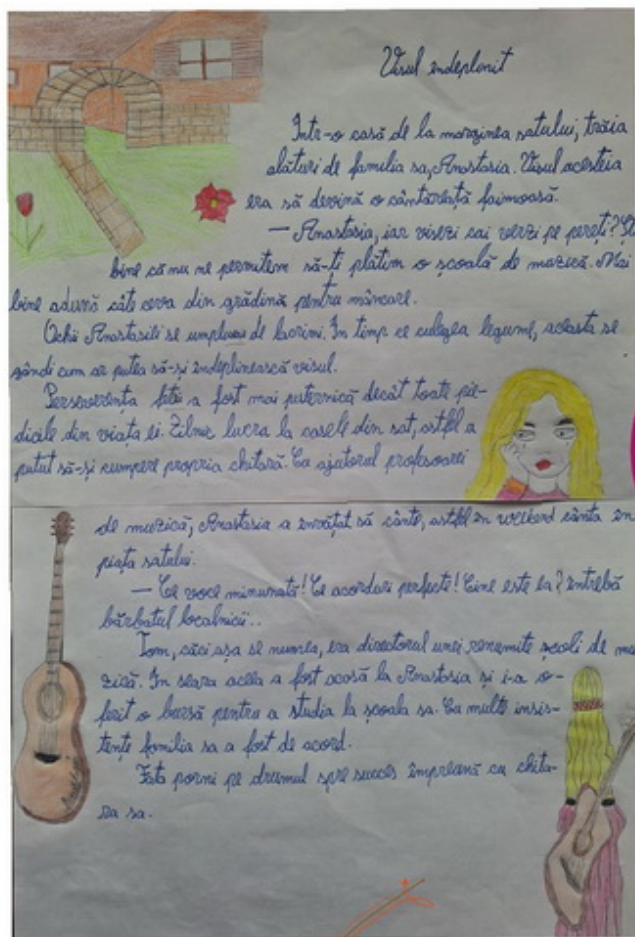 Visul îndeplinit
Într-o casă de la marginea satului, trăia
alături de familia sa, Anastasia. Visul acesteia
era să devină o cântăreață faimoasă.
— Anastasia, iar visezi cai verzi pe pereți? Știi
bine că nu ne permitem să-ți plătim o școală de muzică. Mai
bine adună câte ceva din grădină pentru mâncare.
Ochii Anastasiei se umpluau de lacrimi. În timp ce culegea legume, aceasta se
gândi cum ar putea să-și îndeplinească visul.
Perseverența fetei a fost mai puternică decât toate pie-
dicile din viața ei. Zilnic lucra la casele din sat, astfel a
putut să-și cumpere propria chitară. Cu ajutorul profesoarei
de muzică, Anastasia a învățat să cânte, astfel în weekend cânta în
piața satului.
— Ce voce minunată! Ce acorduri perfecte! Cine este ea? întrebă
bărbatul localnicii..
Tom, căci așa se numea, era directorul unei renumite școli de mu-
zică. În seara aceea a fost acasă la Anastasia și i-a o-
ferit o bursă pentru a studia la școala sa. Cu multe insis-
tențe familia sa a fost de acord.
Fata porni pe drumul spre succes împreună cu chita-
ra sa.